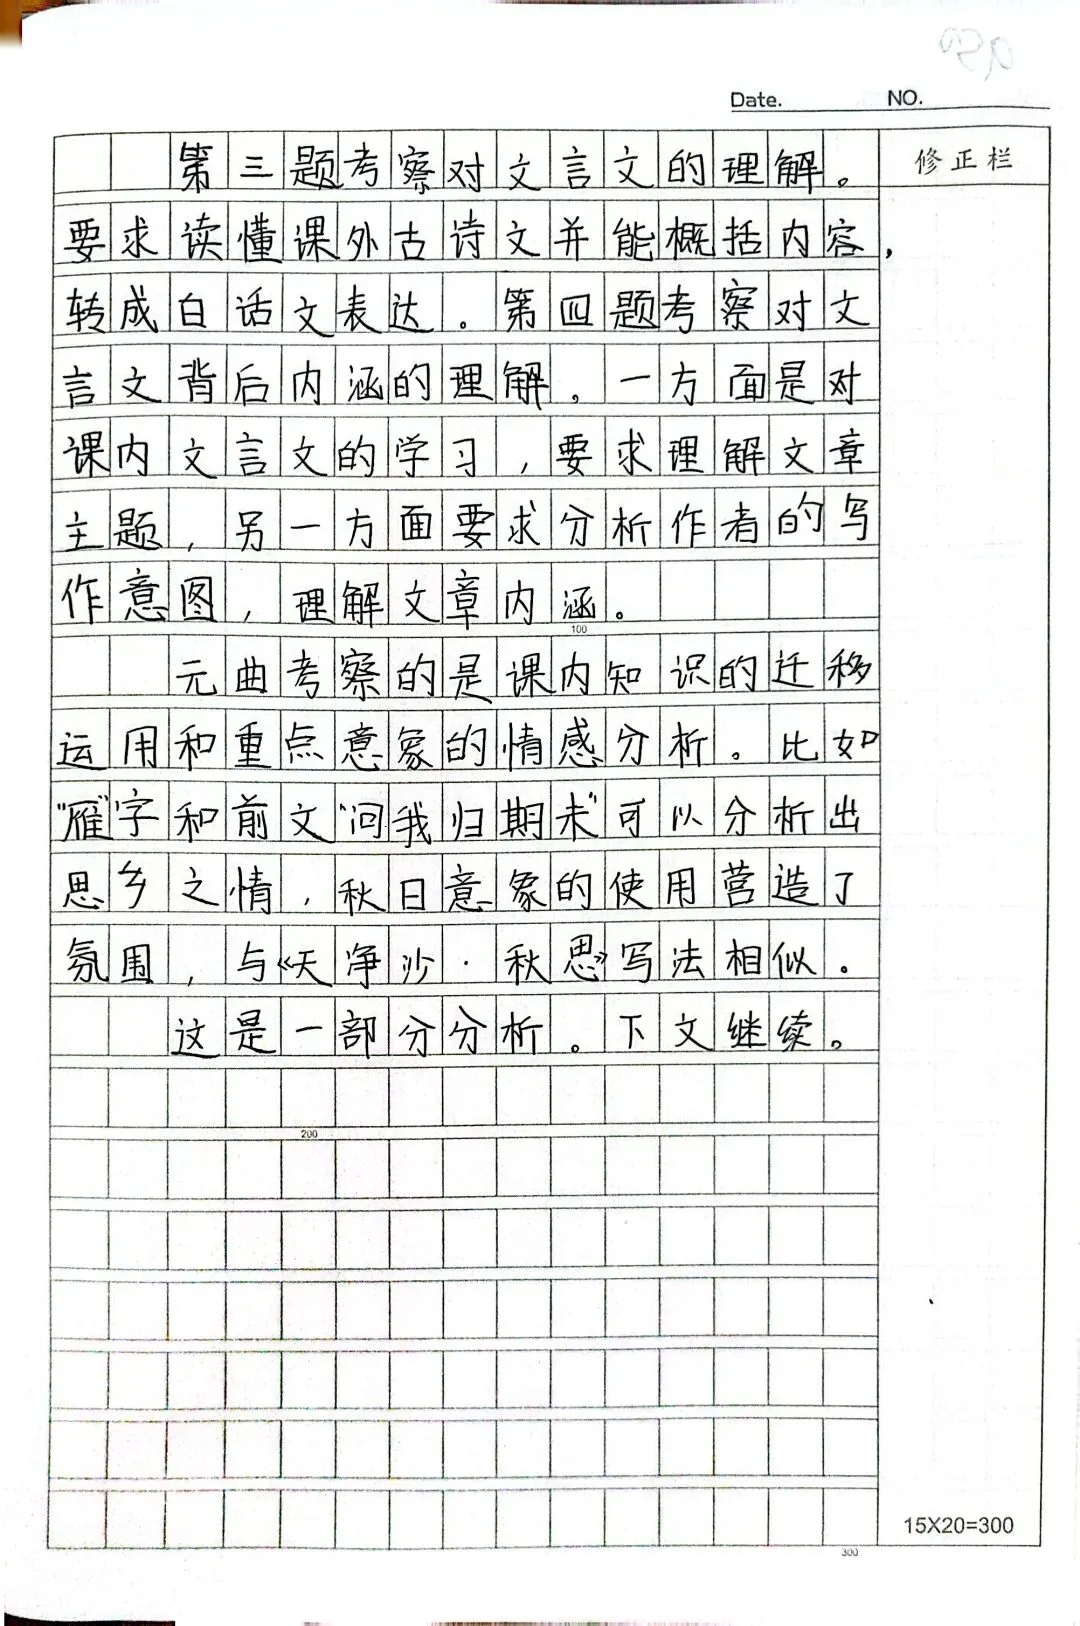 Date. NO.
修正栏
第三题考察对文言文的理解。
要求读懂课外古诗文并能概括内容，
转成白话文表达。第四题考察对文
言文背后内涵的理解。一方面是对
课内文言文的学习，要求理解文章
主题，另一方面要求分析作者的写
作意图，理解文章内涵。
100
元曲考察的是课内知识的迁移
运用和重点意象的情感分析。比如
“雁”字和前文“问我归期未”可以分析出
思乡之情，秋日意象的使用营造了
氛围，与《天净沙·秋思》写法相似。
这是一部分分析。下文继续。
200
15X20=300
300